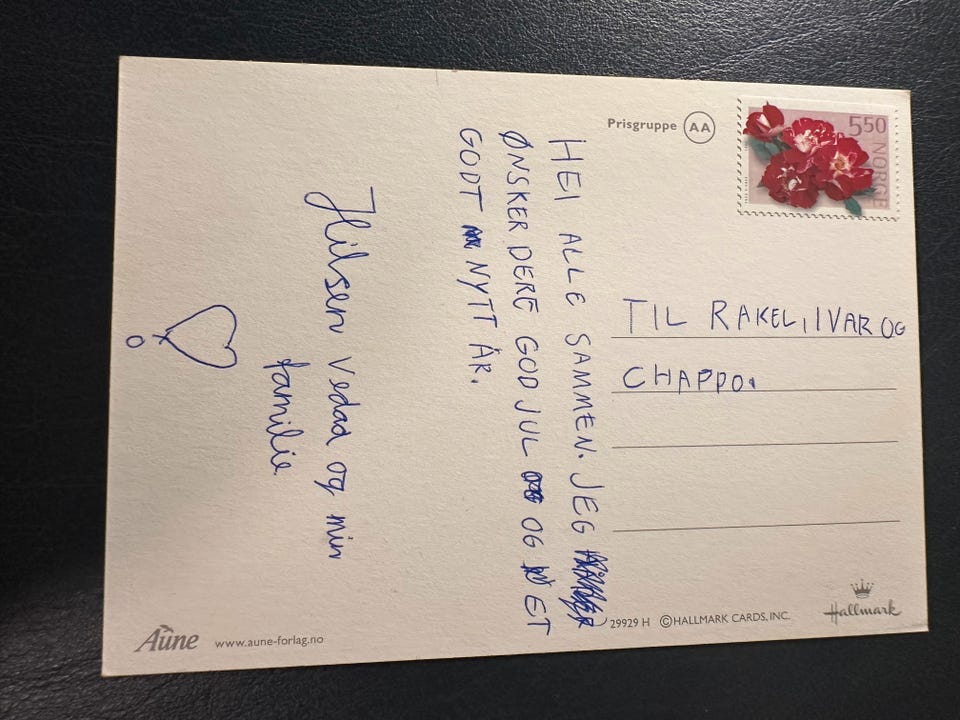 HEI ALLE SAMMEN. JEG
ØNSKER DERE GOD JUL OG ET
GODT NYTT ÅR.
Hilsen Vedad og min
familie
Prisgruppe AA
550 NORGE
TIL RAKEL, IVAR OG
CHAPPO.
Aune www.aune-forlag.no
29929 H ©HALLMARK CARDS, INC.
Hallmark